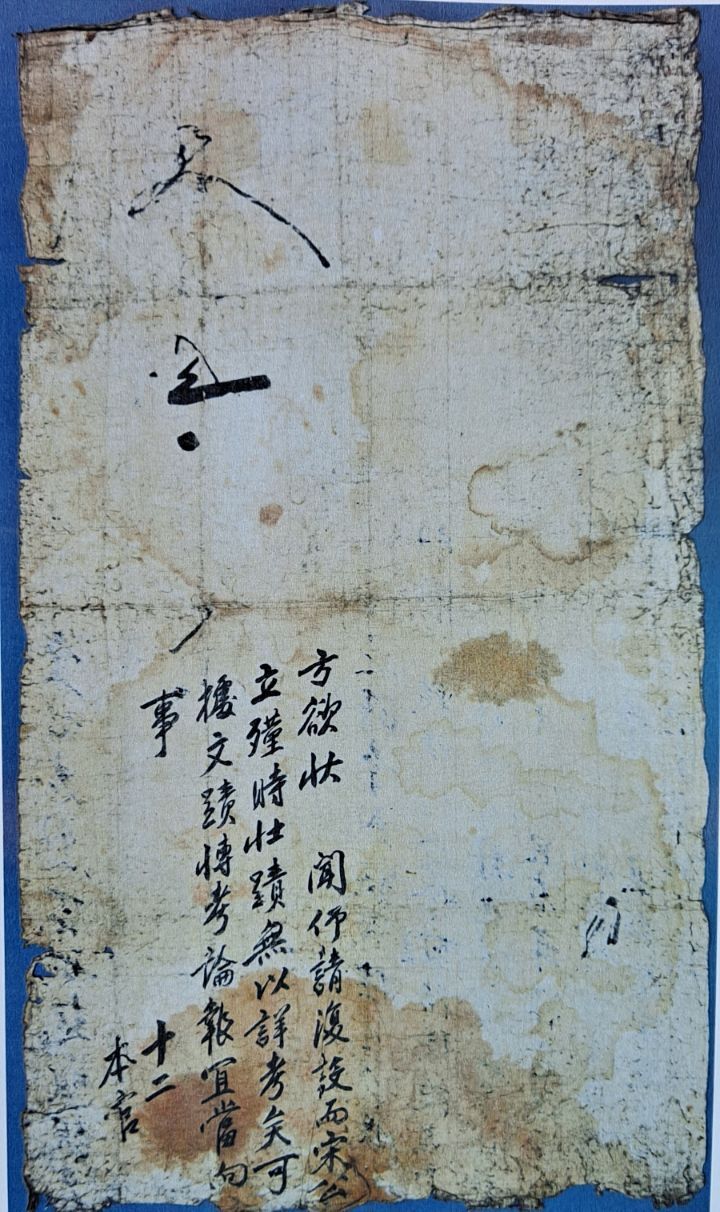 方欲狀 聞伊請復設而宋公
立殣時壯蹟無以詳考矣可
據文蹟博考論報宜當向
事
十二
本官